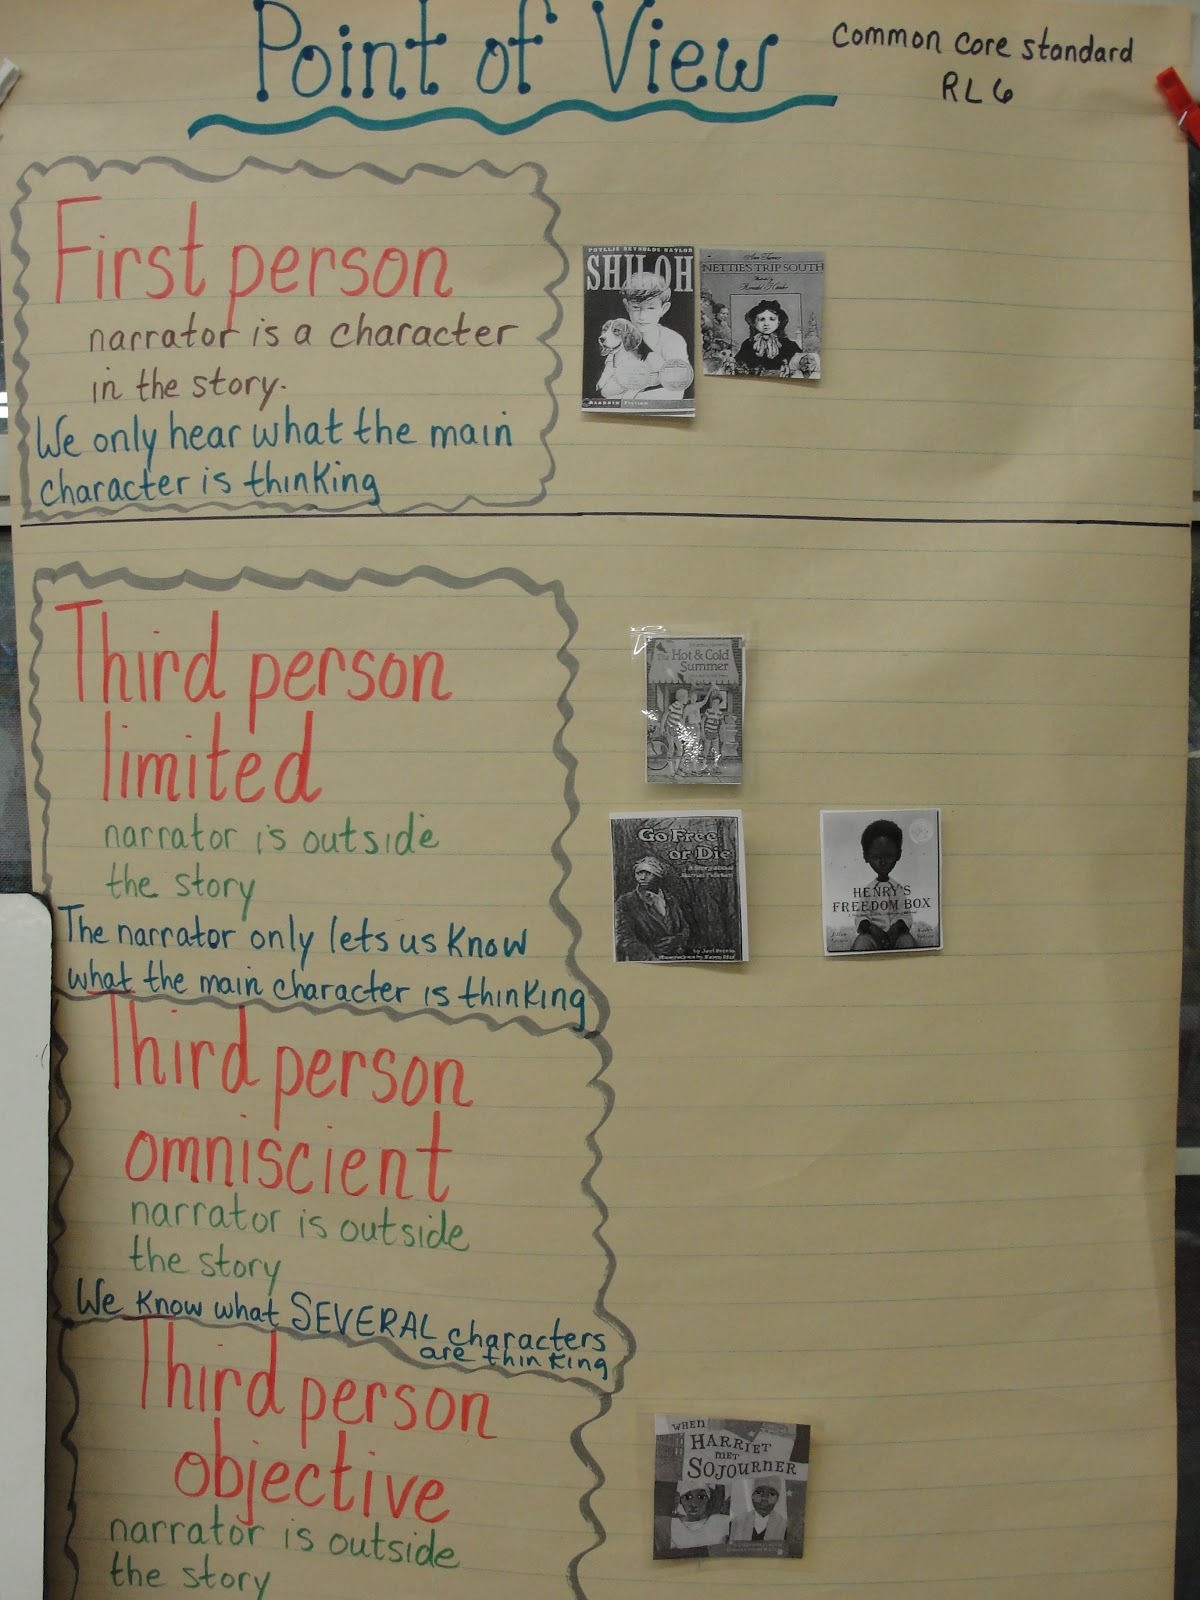 Point of View
Common core standard
RL6
First person
narrator is a character
in the story.
We only hear what the main
character is thinking
PHYLLIS REYNOLDS NAYLOR
SHILOH
NETTIE'S TRIP SOUTH
Third person
limited
narrator is outside
the story
The narrator only lets us know
what the main character is thinking
The
Hot & Cold
Summer
Go Free
or Die
A Story about
Harriet Tubman
HENRY'S
FREEDOM BOX
Third person
omniscient
narrator is outside
the story
We know what SEVERAL characters
are thinking
Third person
objective
narrator is outside
the story
WHEN
HARRIET
MET
SOJOURNER